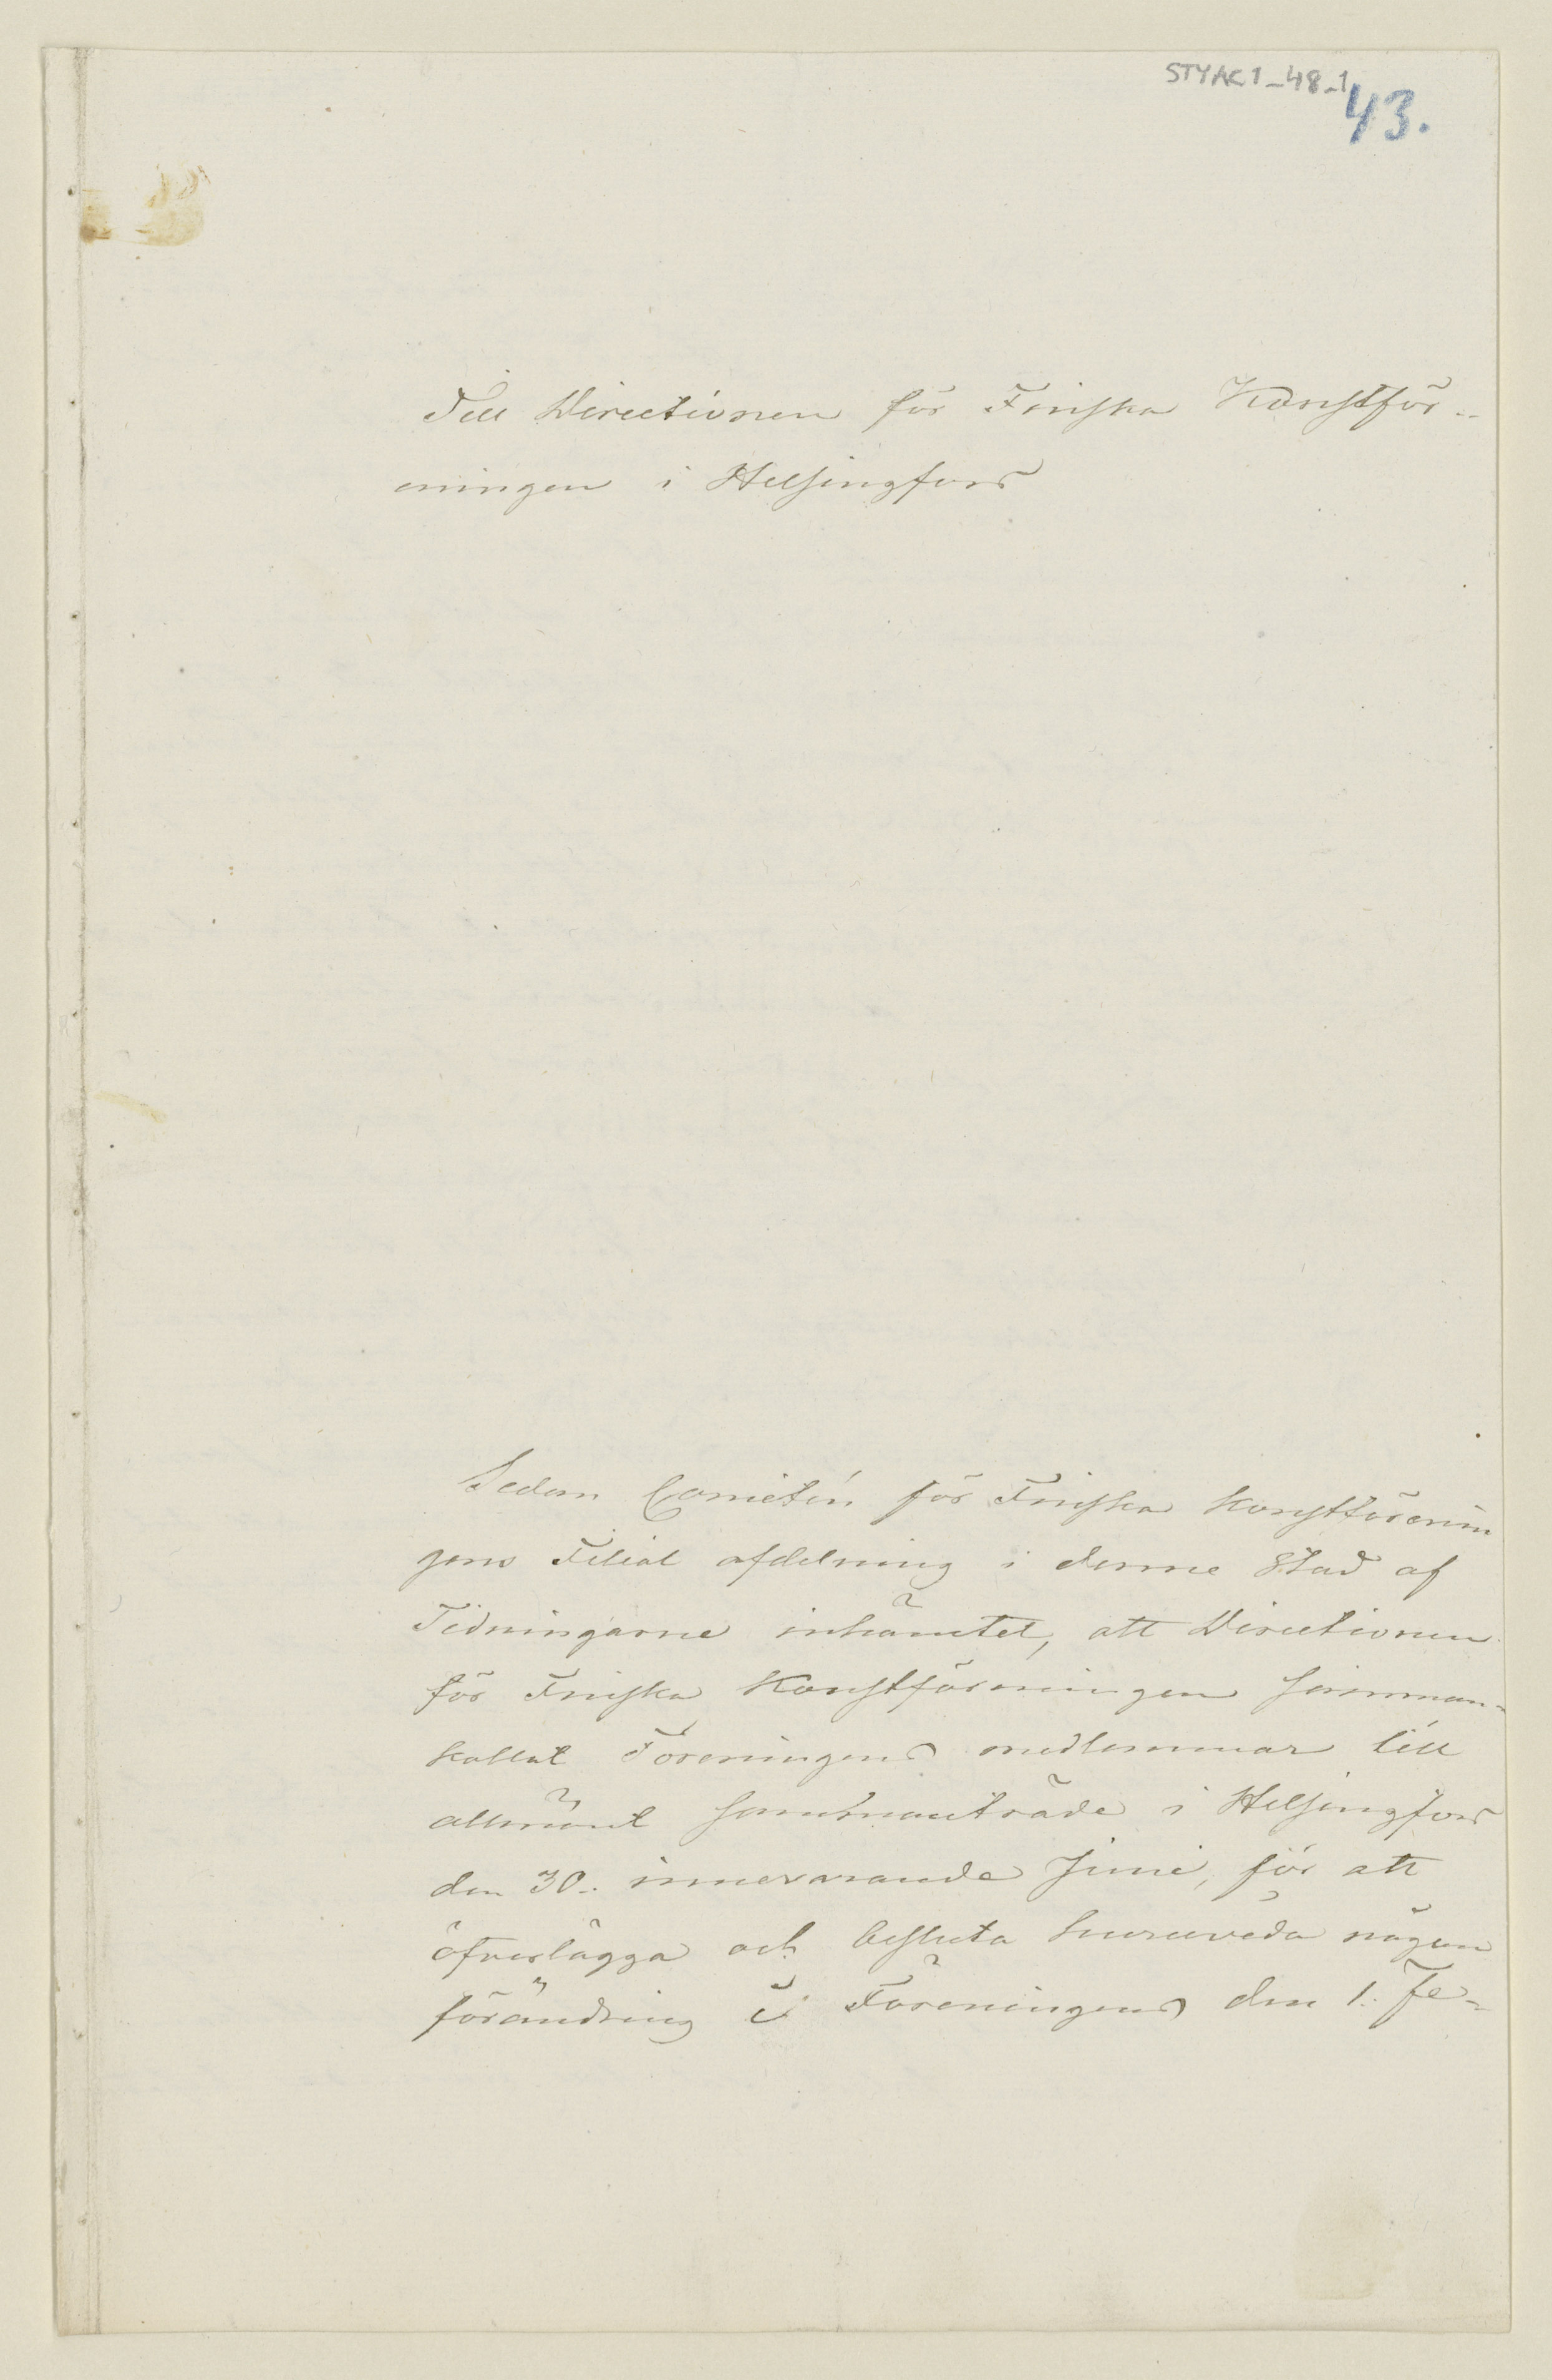 STYAC1_48_1
43.
Till Directionen för Finska Konstför-
eningen i Helsingfors
Sedan Comitén för Finska Konstförenin
gens Filial afdelning i denne Stad af
Tidningarne inhämtet, att Directionen
för Finska Konstföreningen samman-
kallat Föreningens medlemmar till
allmänt sammanträde i Helsingfors
den 30. innevarande Juni, för att
öfverlägga och besluta huruvida någon
förändring i Föreningens den 1. Fe-